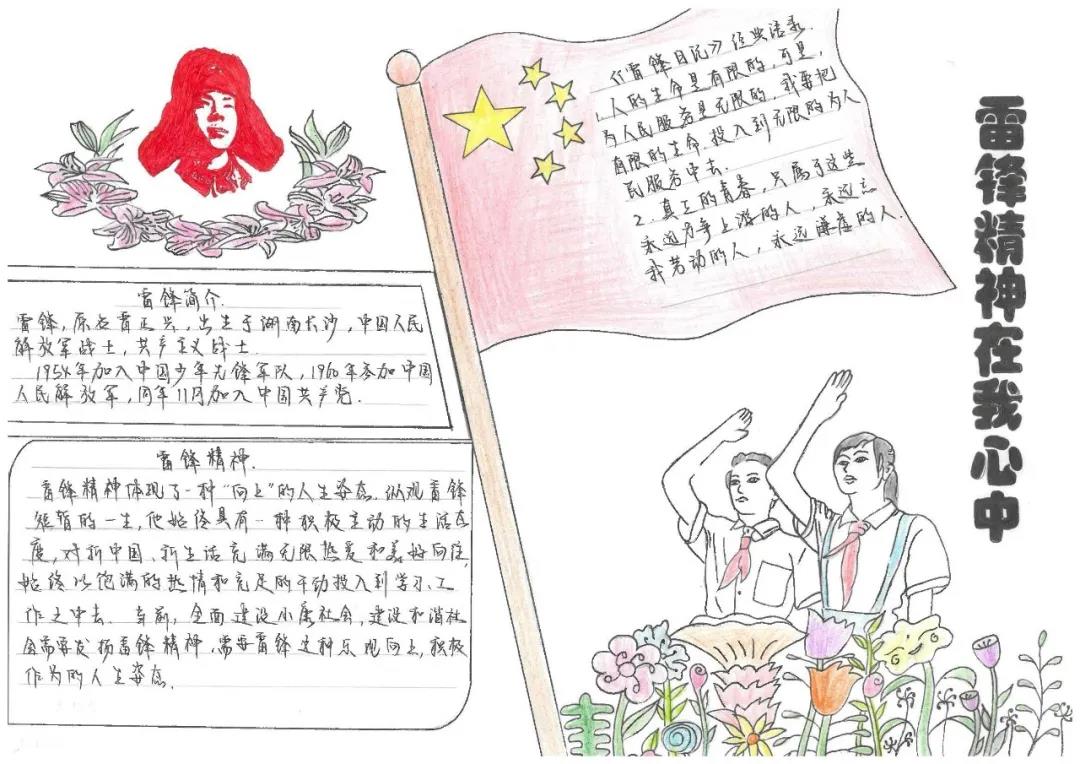 雷锋精神在我心中
《雷锋日记》经典语录.
1.人的生命是有限的,可是,
为人民服务是无限的,我要把
有限的生命,投入到无限的为人
民服务中去.
2.真正的青春,只属于这些
永远力争上游的人,永远忘
我劳动的人,永远谦虚的人.
雷锋简介.
雷锋,原名雷正兴,出生于湖南长沙,中国人民
解放军战士,共产主义战士.
1954年加入中国少年先锋军队,1960年参加中国
人民解放军,同年11月加入中国共产党.
雷锋精神.
雷锋精神体现了一种“向上”的人生姿态.纵观雷锋
短暂的一生,他始终具有一种积极主动的生活态
度,对新中国、新生活充满无限热爱和美好向往,
始终以饱满的热情和充足的干劲投入到学习、工
作之中去.当前,全面建设小康社会,建设和谐社
会需要发扬雷锋精神,需要雷锋这种乐观向上,积极
作为的人生姿态.